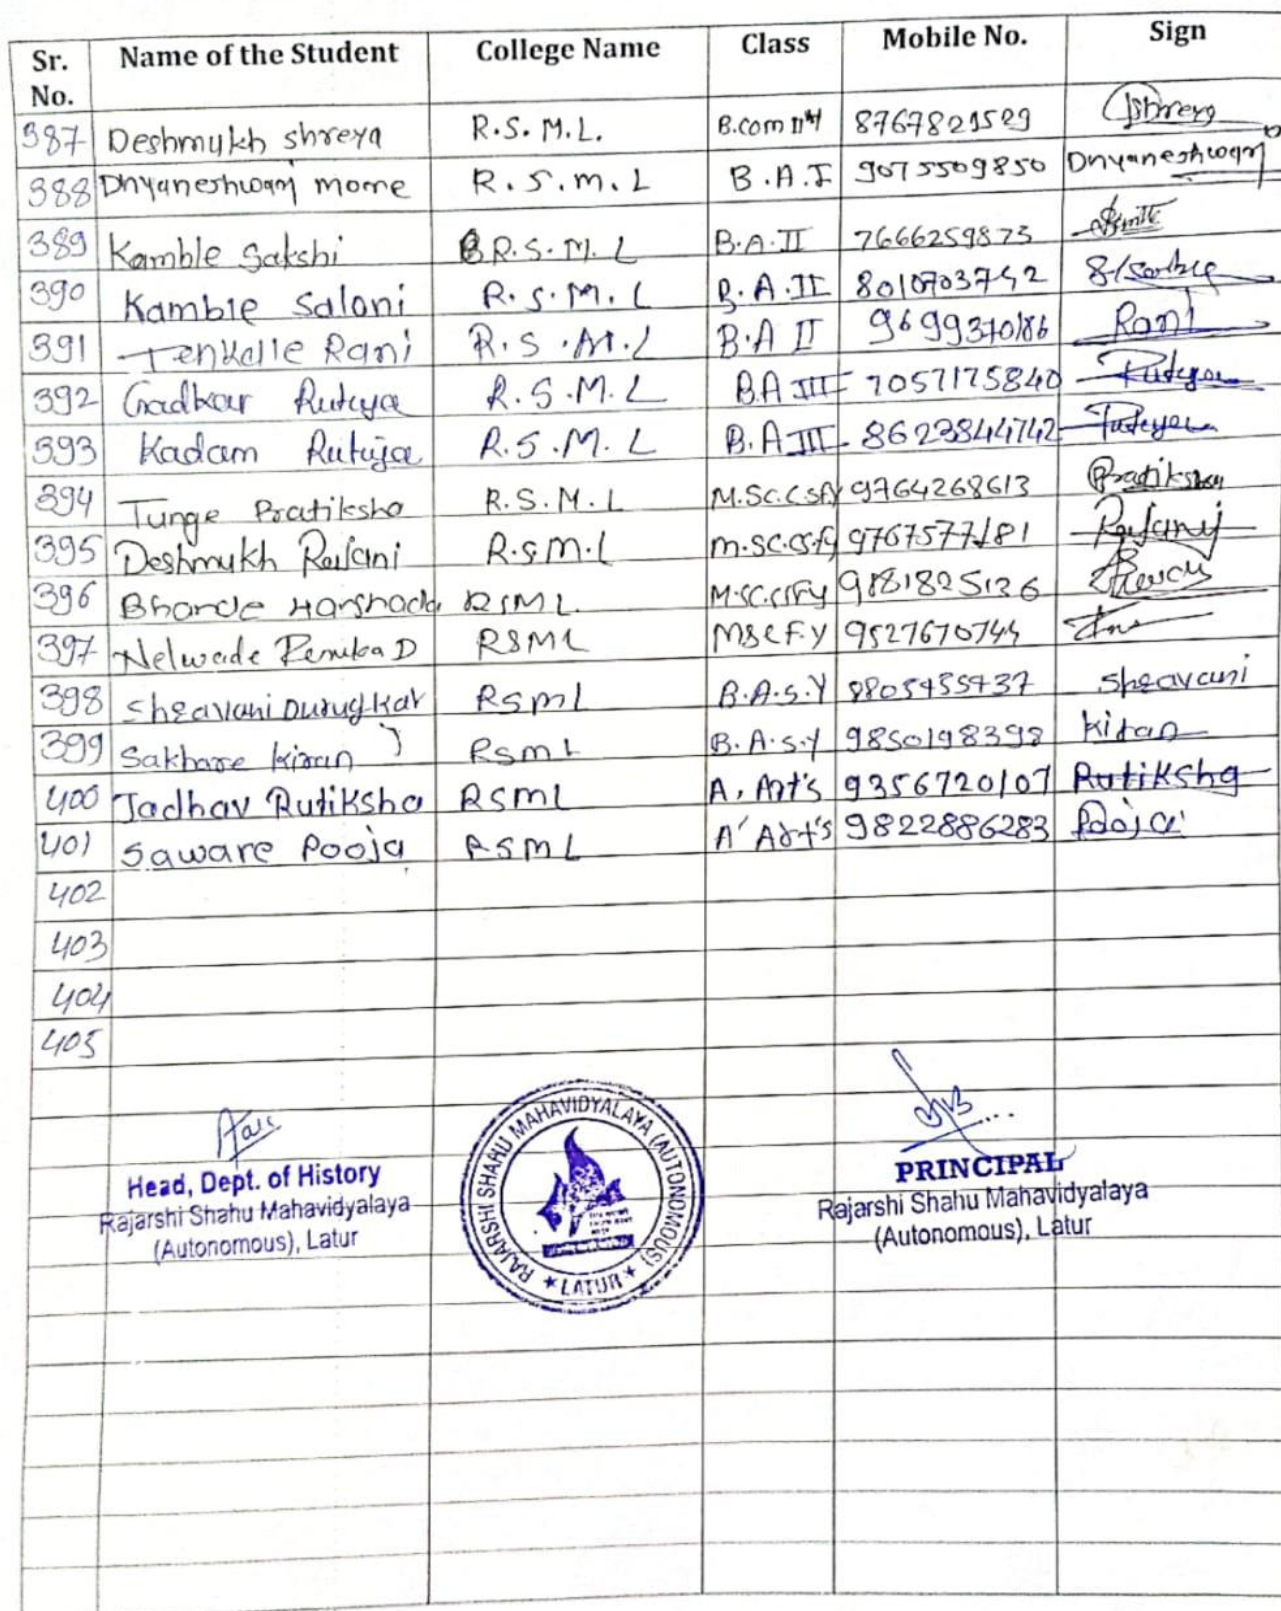 Sr. No. Name of the Student College Name Class Mobile No. Sign
387 Deshmukh shreya R.S.M.L. B.com 8767821529 Shreya
388 Dnyaneshwari more R.S.m.L B.A.I 9075509850 Dnyaneshwari
389 Kamble Sakshi R.S.M.L B.A.II 7666259873
390 Kamble Saloni R.S.M.L B.A.II 8010703742
391 Tenkalle Rani R.S.M.L B.A II 9699370186 Rani
392 Gadkar Rutuja R.S.M.L B.A III 7057175840 Rutuja
393 Kadam Rutuja R.S.M.L B.A III 8623844742
394 Tunge Pratiksha R.S.M.L M.Sc.CSFY 9764268613 Pratiksha
395 Deshmukh Rajani R.S.M.L m.sc.cs.fy 9767577181 Rajani
396 Bharde Harshada RSML M.SC.CSFY 9881825126
397 Nelwade Renuka D RSML MScF.Y 9527670744
398 Sheavani Durugkar RSML B.A.S.Y 9805455437 Sheavani
399 Sakhare Kiran J RSML B.A.S.Y 9850198398 Kiran
400 Jadhav Rutiksha RSML A, Art's 9356720107 Rutiksha
401 Saware Pooja RSML A' Art's 9822886283 Pooja
402
403
404
405
Head, Dept. of History
Rajarshi Shahu Mahavidyalaya
(Autonomous), Latur
RAJARSHI SHAHU MAHAVIDYALAYA (AUTONOMOUS)
★ LATUR ★
PRINCIPAL
Rajarshi Shahu Mahavidyalaya
(Autonomous), Latur